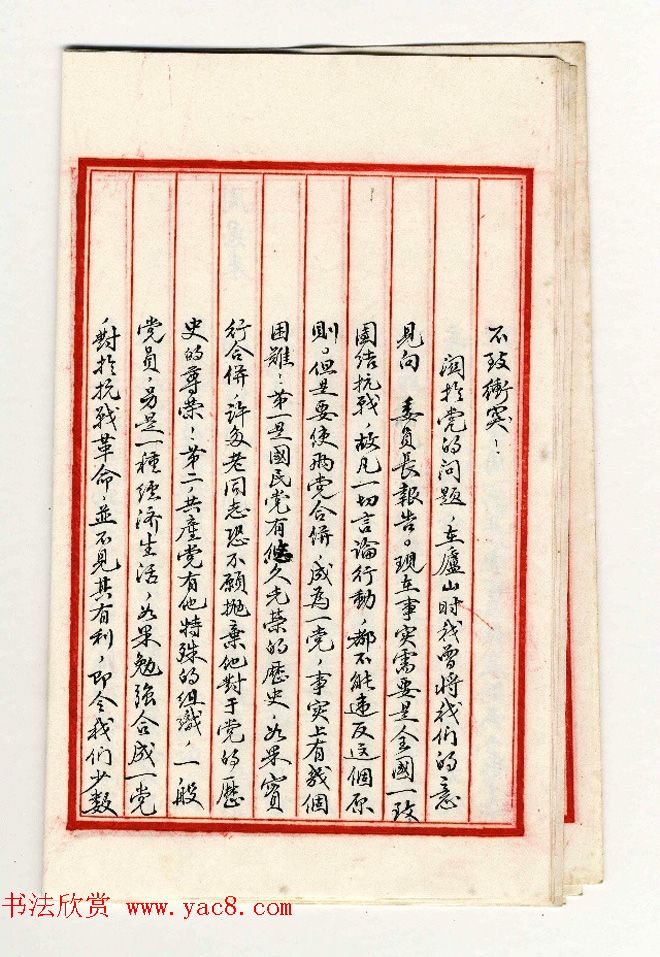 不致衝突！
関於党的问题，在廬山时我曾将我们的意
見向 委員長報告。現在事实需要是全國一致
團结抗戰，故凡一切言論行動，都不能違反这個原
則。但是要使兩党合併，成為一党，事实上有幾個
困難：第一是國民党有悠久光荣的歷史，如果實
行合併，许多老同志恐不願抛棄他對于党的歷
史的尊荣：第二，共產党有他特殊的组織，一般
党員，另是一種经济生活，如果勉強合成一党
，對於抗戰革命，並不見其有利，即令我们少数
书法欣赏 www.yac8.com